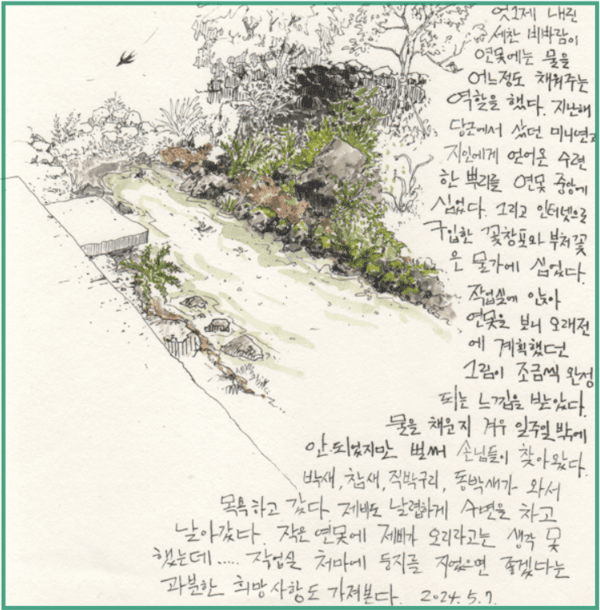 엊그제 내린
세찬 비바람이
연못에는 물을
어느정도 채워주는
역할을 했다. 지난해
당근에서 샀던 미니연과
지인에게 얻어온 수련
한 뿌리를 연못 중앙에
심었다. 그리고 인터넷으로
구입한 꽃창포와 부처꽃
은 물가에 심었다.
작업실에 앉아
연못을 보니 오래전
에 계획했던
그림이 조금씩 완성
되는 느낌을 받았다.
물을 채운지 겨우 일주일 밖에
안되었지만 벌써 손님들이 찾아왔다.
박새, 참새, 직박구리, 동박새가 와서
목욕하고 갔다. 제비도 날렵하게 수면을 차고
날아갔다. 작은 연못에 제비가 오리라고는 생각 못
했는데..... 작업실 처마에 둥지를 지었으면 좋겠다는
과분한 희망사항도 가져본다. 2024. 5. 7.